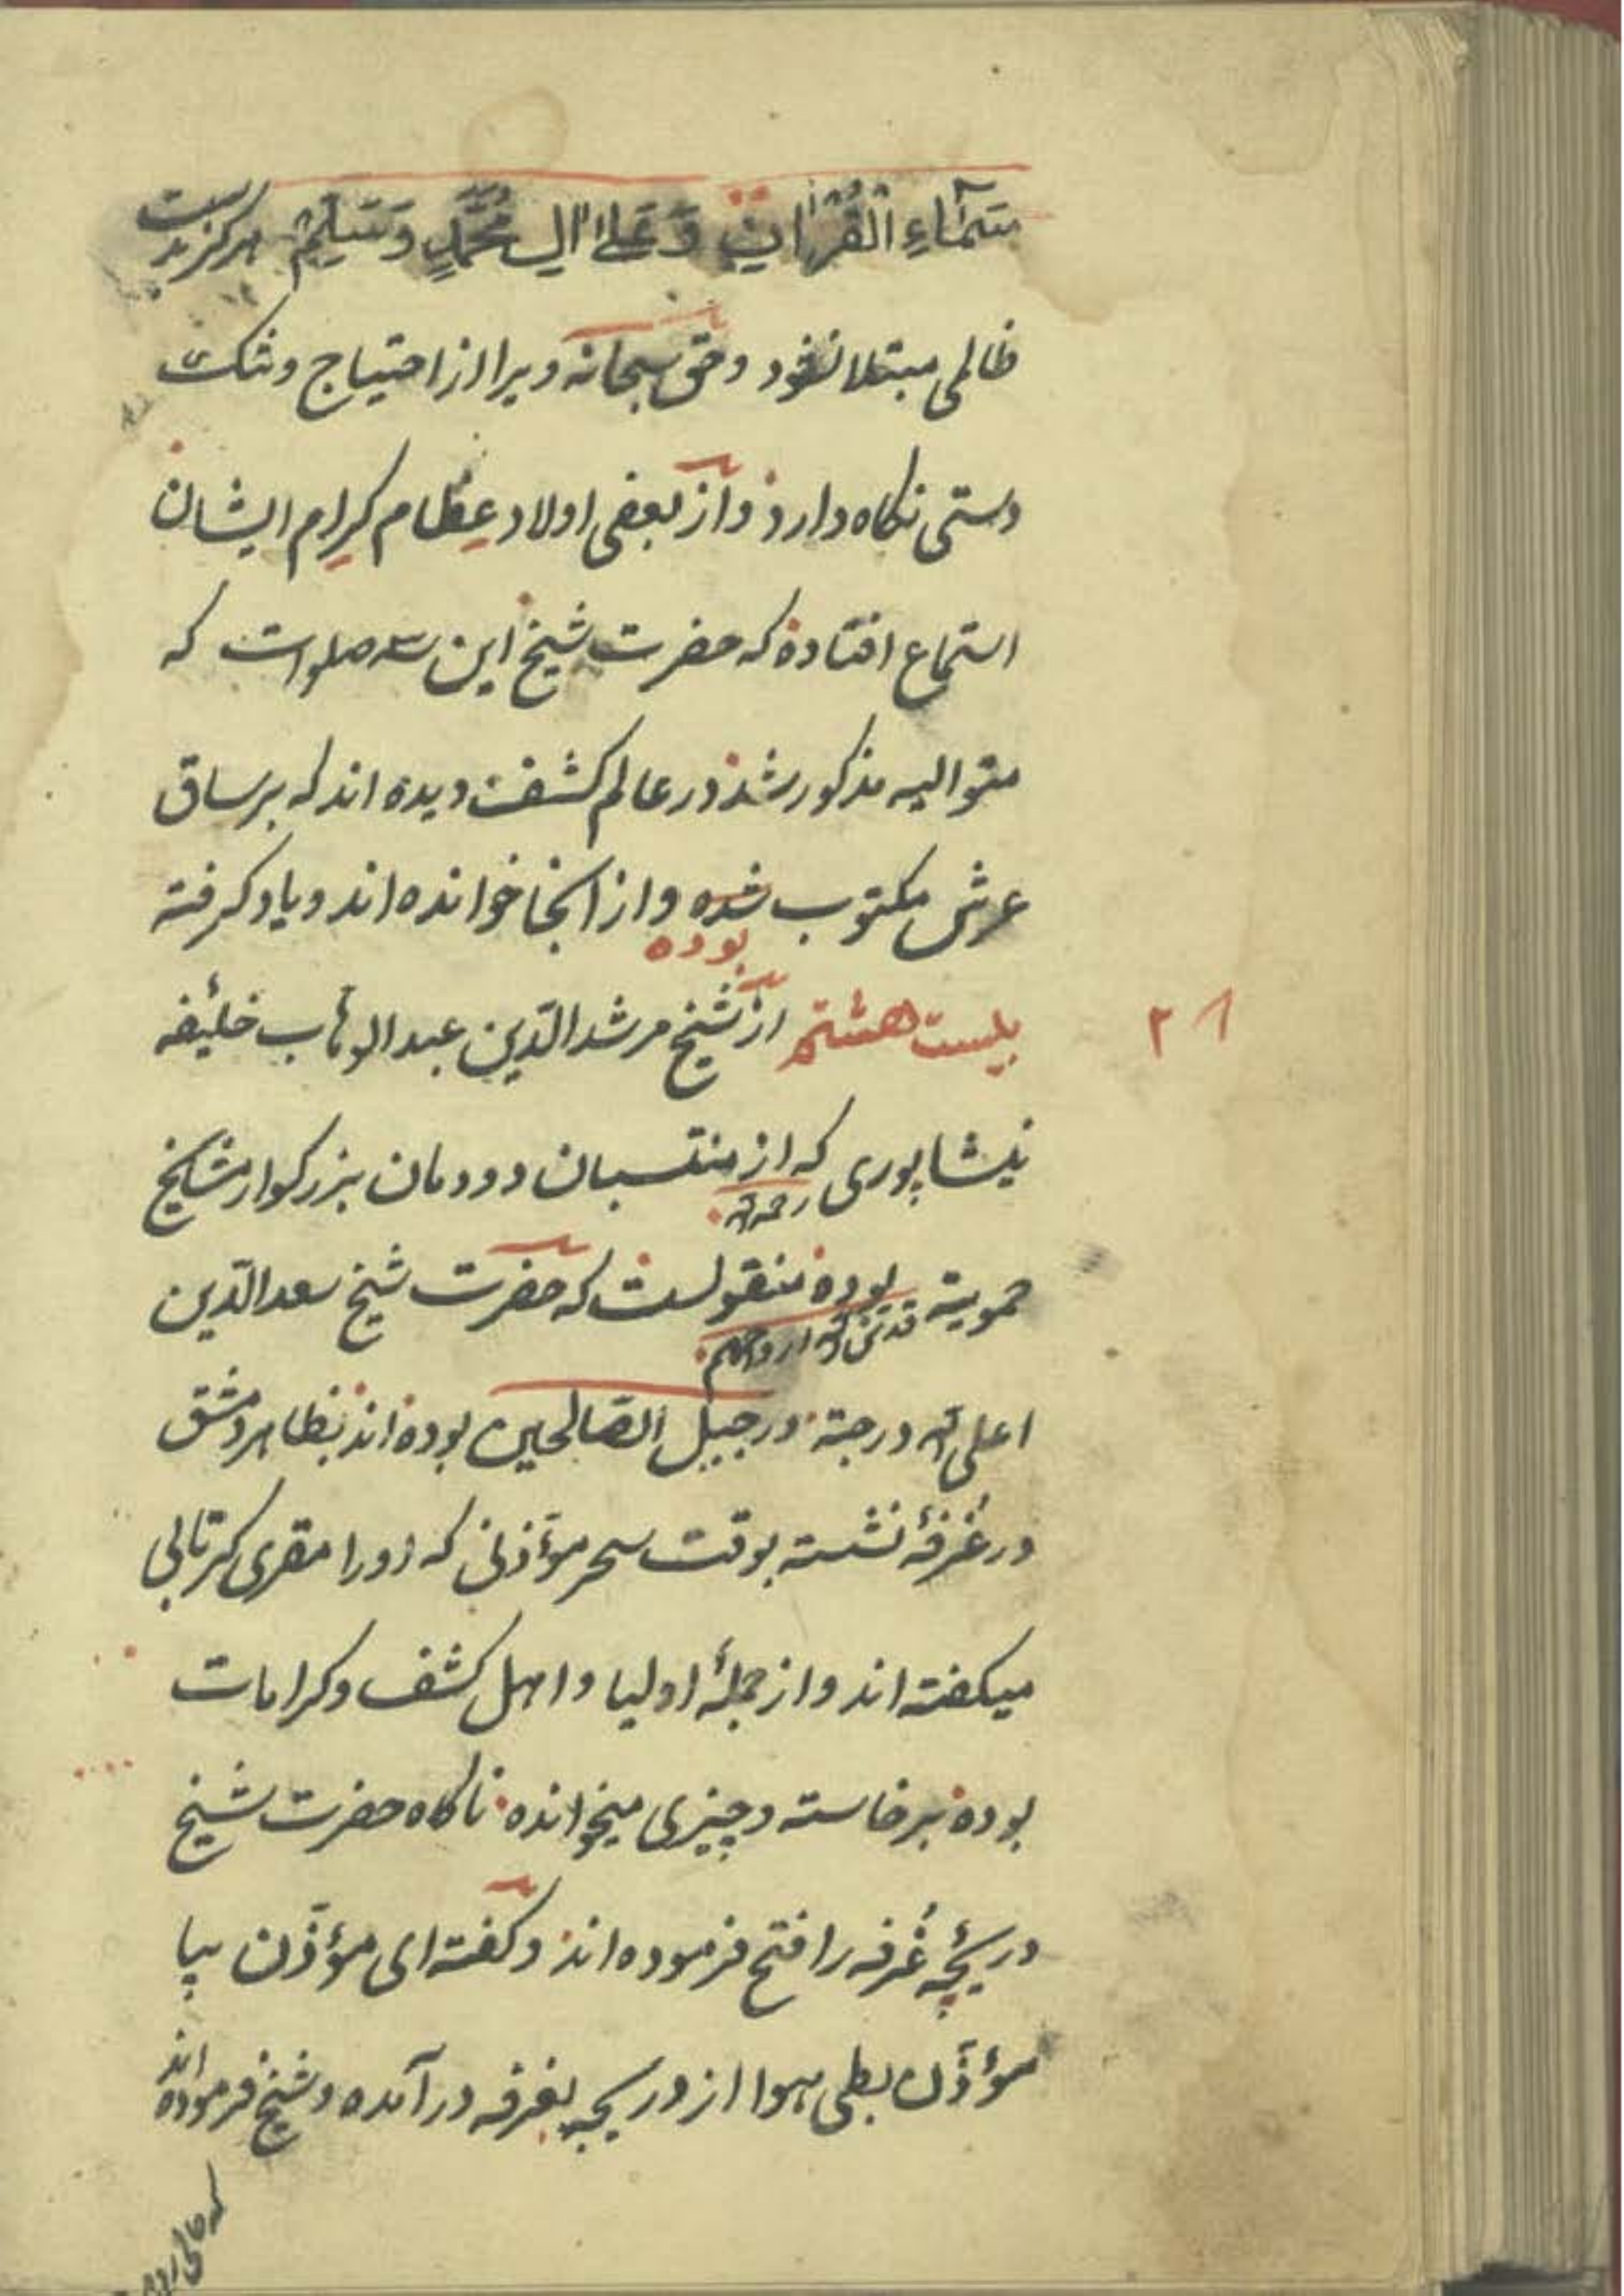 سَمَاءِ الْقُرْانِ وَعَلَى الِ مُحَمَّدٍ وَسَلِّمْ هرکز بدست
ظالمی مبتلا نشود و حق سبحانه ویرا از احتیاج و تنک
دستی نکاه دارد و از بعضی اولاد عِظام کِرام ایشان
استماع افتاده که حضرت شیخ این سه صلوات که
متوالیه مذکور شد در عالم کشف دیده اند که بر ساق
عرش مکتوب شده و از انجا خوانده اند و یاد کرفته
بوده
۲۸
بیست هشتم از شیخ مرشد الدّین عبد الوهاب خلیفه
نیشاپوری که از منتسبان دودمان بزرکوار مشایخ
رحمه الله
حمویه بوده منقولست که حضرت شیخ سعد الدّین
قدس الله ارواحهم
اعلی الله درجته در جبل الصّالحین بوده اند بظاهر دمشق
در غُرفهٔ نشسته بوقت سحر مؤذنی که اورا مقری
میکفته اند و از جملهٔ اولیا و اهل کشف و کرامات
بوده برخاسته و چیزی میخوانده ناکاه حضرت شیخ
دریچهٔ غُرفه را فتح فرموده اند و کفته ای مؤذّن بیا
مؤذّن بطی هوا از دریچه بغرفه در آمده و شیخ فرموده اند
که